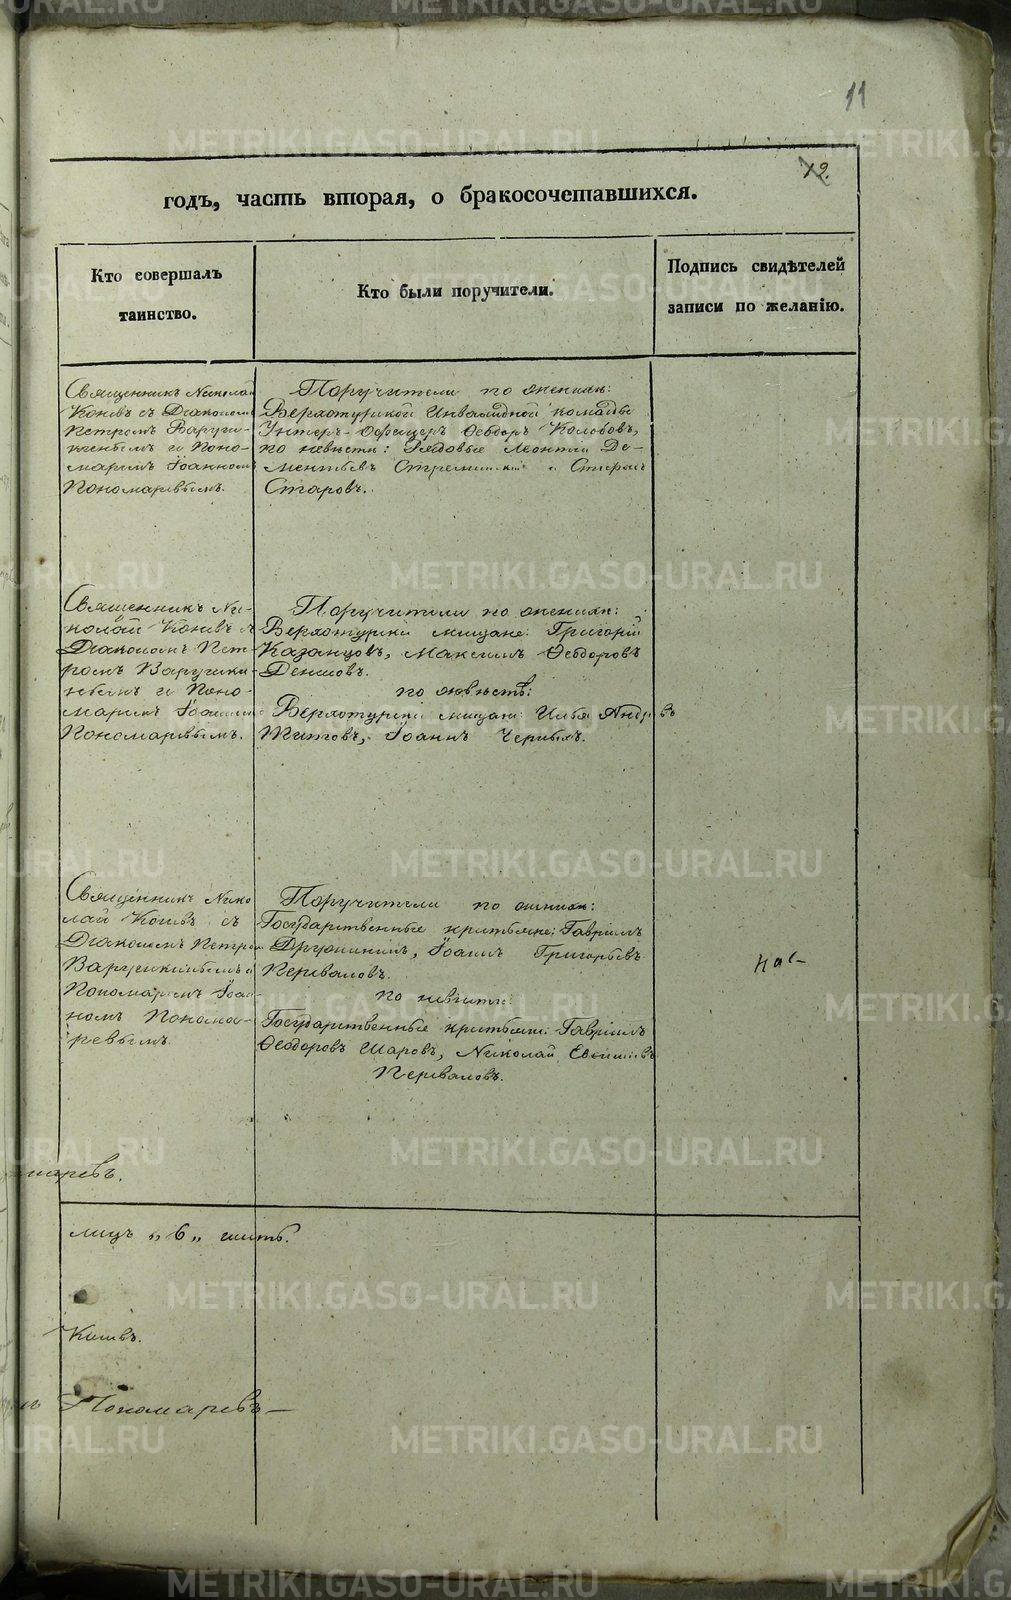 11
12.
годъ, часть вторая, о бракосочетавшихся.
Кто совершалъ
таинство.
Кто были поручители.
Подпись свидѣтелей
записи по желанію.
Священникъ Николай
Коневъ съ Діакономъ
Петромъ
и Поно-
маремъ Іоанномъ
Пономаревымъ.
Поручители по женихѣ:
Верхотурской Инвалидной команды
Унтеръ-Офицеръ Ѳеодоръ Колобовъ,
по невѣстѣ: Рядовые Леонтій Де-
ментьевъ и
Старовъ.
Священникъ Ни-
колай Коневъ съ
Діакономъ Пет-
ромъ
и Поно-
маремъ Іоанномъ
Пономаревымъ.
Поручители по женихѣ:
Верхотурскіе мещане: Григорій
Казанцовъ, Максимъ Ѳеодоровъ
Денисовъ.
по невѣстѣ:
Верхотурскіе мещане: Илья Андреевъ
Титовъ, Іоаннъ Черныхъ.
Священникъ Нико-
лай Коневъ съ
Діакономъ Петромъ
и
Пономаремъ Іоан-
номъ Понома-
ревымъ.
Поручители по женихѣ:
Государственные крестьяне: Гавріилъ
Іоаннъ Григорьевъ
Перваловъ.
по невѣстѣ:
Государственные крестьяне: Гавріилъ
Ѳеодоровъ Шаровъ, Николай
Перваловъ.
лицъ „6„ шесть.
Коневъ.
Пономаревъ
METRIKI.GASO-URAL.RU